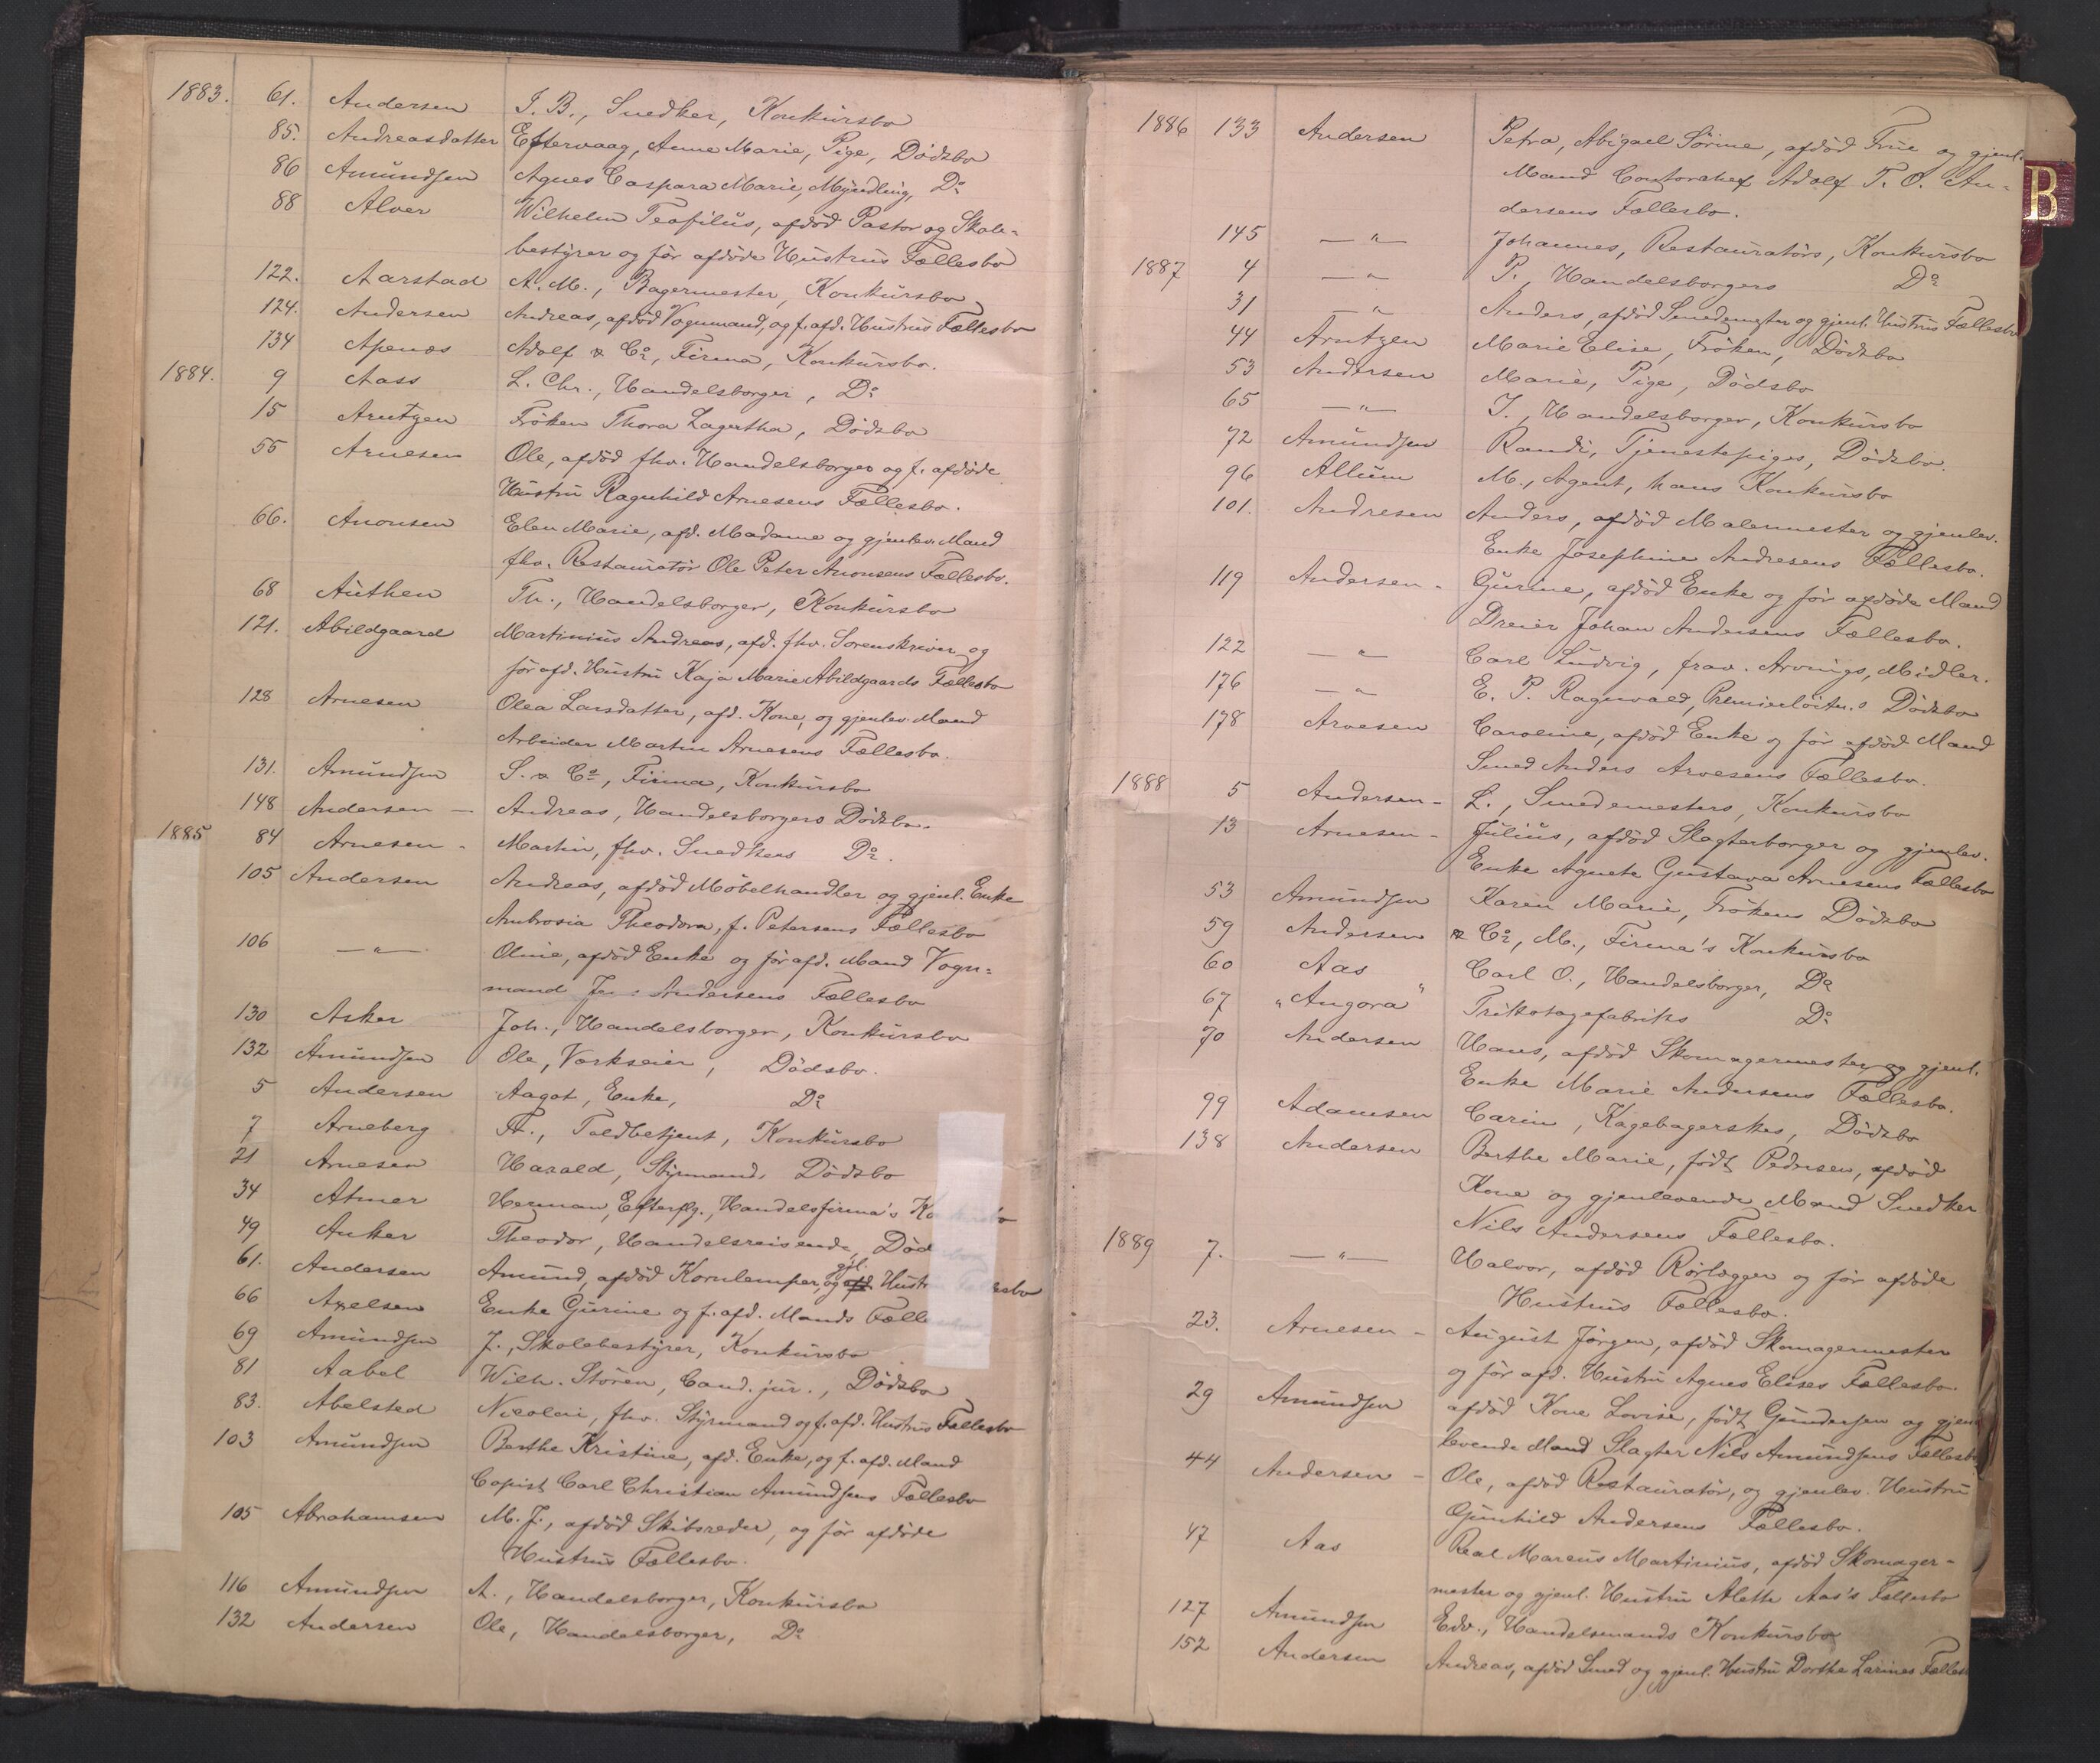 1883. 61. Andersen J. B., Snedker, Konkursbo
85. Andreasdatter Eftervaag, Anne Marie, Pige, Dödsbo
86 Amundsen Agnes Caspara Marie, Myndling, Do
88 Alver Wilhelm Teofilus, afdöd Pastor og Skole-
bestyrer og för afdöde Hustrus Fællesbo
122. Aarstad A. M., Bagermester, Konkursbo
124. Andersen Andreas, afdöd Vognmand, og f. afd. Hustrus Fællesbo
134 Apenæs Adolf & Co, Firma, Konkursbo.
1884. 9 Aass L. Chr., Handelsborger, Do
15 Arntzen Fröken Thora Lagertha, Dödsbo
55 Arnesen Ole, afdöd fhv. Handelsborger og f. afdöde
Hustru Ragnhild Arnesens Fællesbo.
66. Anonsen Elen Marie, afd. Madame og gjenlev. Mand
fhv. Restauratör Ole Peter Anonsens Fællesbo.
68 Authen Th., Handelsborger, Konkursbo
121. Abildgaard Martinius Andreas, afd. fhv. Sorenskriver og
för afd. Hustru Kaja Marie Abildgaards Fællesbo
128 Arnesen Olea Larsdatter, afd. Kone, og gjenlev. Mand
Arbeider Martin Arnesens Fællesbo.
131. Amundsen S. & Co, Firma, Konkursbo
148 Andersen – Andreas, Handelsborgers Dödsbo.
1885 84 Arnesen - Martin, fhv. Snedkers Do.
105 Andersen Andreas, afdöd Möbelhandler og gjenl. Enke
Ambrosia Theodora, f. Petersens Fællesbo
106 —"— Oline, afdöd Enke og för afd. Mand Vogn-
mand Andersens Fællesbo
130 Asker Joh., Handelsborger, Konkursbo
132 Amundsen Ole, Værkseier, Dödsbo.
5 Andersen Aagot, Enke, Do
7 Arneberg Toldbetjent, Konkursbo
21 Arnesen Harald, Styrmand, Dödsbo
34 Atmer Herman, Efterflg., Handelsfirma's Konkursbo
49 Anker Theodor, Handelsreisende, Dödsbo
61. Andersen Amund, afdöd Kornlemper, og gjl. afd. Hustrus Fællesbo
66 Axelsen Enke Gurine og f. afd. Mands Fællesbo
69 Amundsen J., Skolebestyrer, Konkursbo
81 Aabel Wilh. Stören, Cand. jur., Dödsbo
83. Abelsted Nicolai, fhv. Styrmand og f. afd. Hustrus Fællesbo
103 Amundsen Berthe Kristine, afd. Enke, og f. afd. Mand
Copist Carl Christian Amundsens Fællesbo
105 Abrahamsen M. J., afdöd Skibsreder, og för afdöde
Hustrus Fællesbo.
116 Amundsen A., Handelsborger, Konkursbo
132 Andersen Ole, Handelsborger, Do
1886 133 Andersen Petra, Abigael Sörine, afdöd Frue og gjenl.
Mand Contorchef Adolf T. O. An-
dersens Fællesbo.
145 —"— Johannes, Restauratörs, Konkursbo
1887 4 —"— P., Handelsborgers Do
31 —"— Anders, afdöd Smedemester og gjenl. Hustrus Fællesbo
44 Arntzen Marie Elise, Fröken, Dödsbo
53 Andersen Marie, Pige, Dödsbo
65 —"— J., Handelsborger, Konkursbo
72 Amundsen Randi, Tjenestepiges, Dödsbo.
96 Allum M., Agent, hans Konkursbo
101. Andresen Anders, afdöd Malermester og gjenlev.
Enke Josephine Andresens Fællesbo.
119 Andersen - Gurine, afdöd Enke og för afdöde Mand
Dreier Johan Andersens Fællesbo.
122 —"— Carl Ludvig, frav. Arvings, Midler.
176 —"— E. P. Ragnvald, Premierlöitn.s Dödsbo
178 Arvesen Caroline, afdöd Enke og för afdöd Mand
Smed Anders Arvesens Fællesbo.
1888 5 Andersen - L., Smedemesters, Konkursbo
13 Arnesen - Julius, afdöd Slagterborger og gjenlev.
Enke Agnete Gustava Arnesens Fællesbo
53 Amundsen Karen Marie, Frökens Dödsbo
59 Andersen & Co, M., Firma's Konkursbo
60 Aas Carl O., Handelsborger, Do
67 "Angora" Trikotagefabriks Do
70 Andersen Hans, afdöd Skomagermester og gjenl.
Enke Marie Andersens Fællesbo.
99 Adamsen Carin, Kagebagerskes, Dödsbo
138 Andersen Berthe Marie, født Pedersen, afdöd
Kone og gjenlevende Mand Snedker
Nils Andersens Fællesbo.
1889 7. —"— Halvor, afdöd Rörlægger og för afdöde
Hustrus Fællesbo.
23. Arnesen - August Jörgen, afdöd Skomagermester
og för afd. Hustru Agnes Elises Fællesbo.
29 Amundsen afdöd Kone Lovise, født Gundersen og gjen
levende Mand Slagter Nils Amundsens Fællesbo
44 Andersen - Ole, afdöd Restauratör, og gjenlev. Hustru
Gunhild Andersens Fællesbo.
47 Aas Real Marcus Martinius, afdöd Skomager-
mester og gjenl. Hustru Alette Aas's Fællesbo
127 Amundsen Edv., Handelsmands Konkursbo
152 Andersen Andreas, afdöd Smed og gjenl. Hustru Dorthe Larines Fælles
B